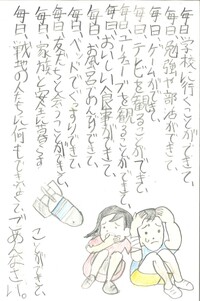 毎日学校に行くことができて、
毎日勉強や部活ができて、
毎日ゲームができて、
毎日テレビを観ることができて、
毎日ユーチューブを観ることができて、
毎日おいしい食事ができて、
毎日お風呂でのんびりできて、
毎日ベッドでぐっすりできて、
毎日友だちと会うことができて、
毎日家族と安心に過ごせることができて、
戦地の人たちに何もできなくてごめんなさい。